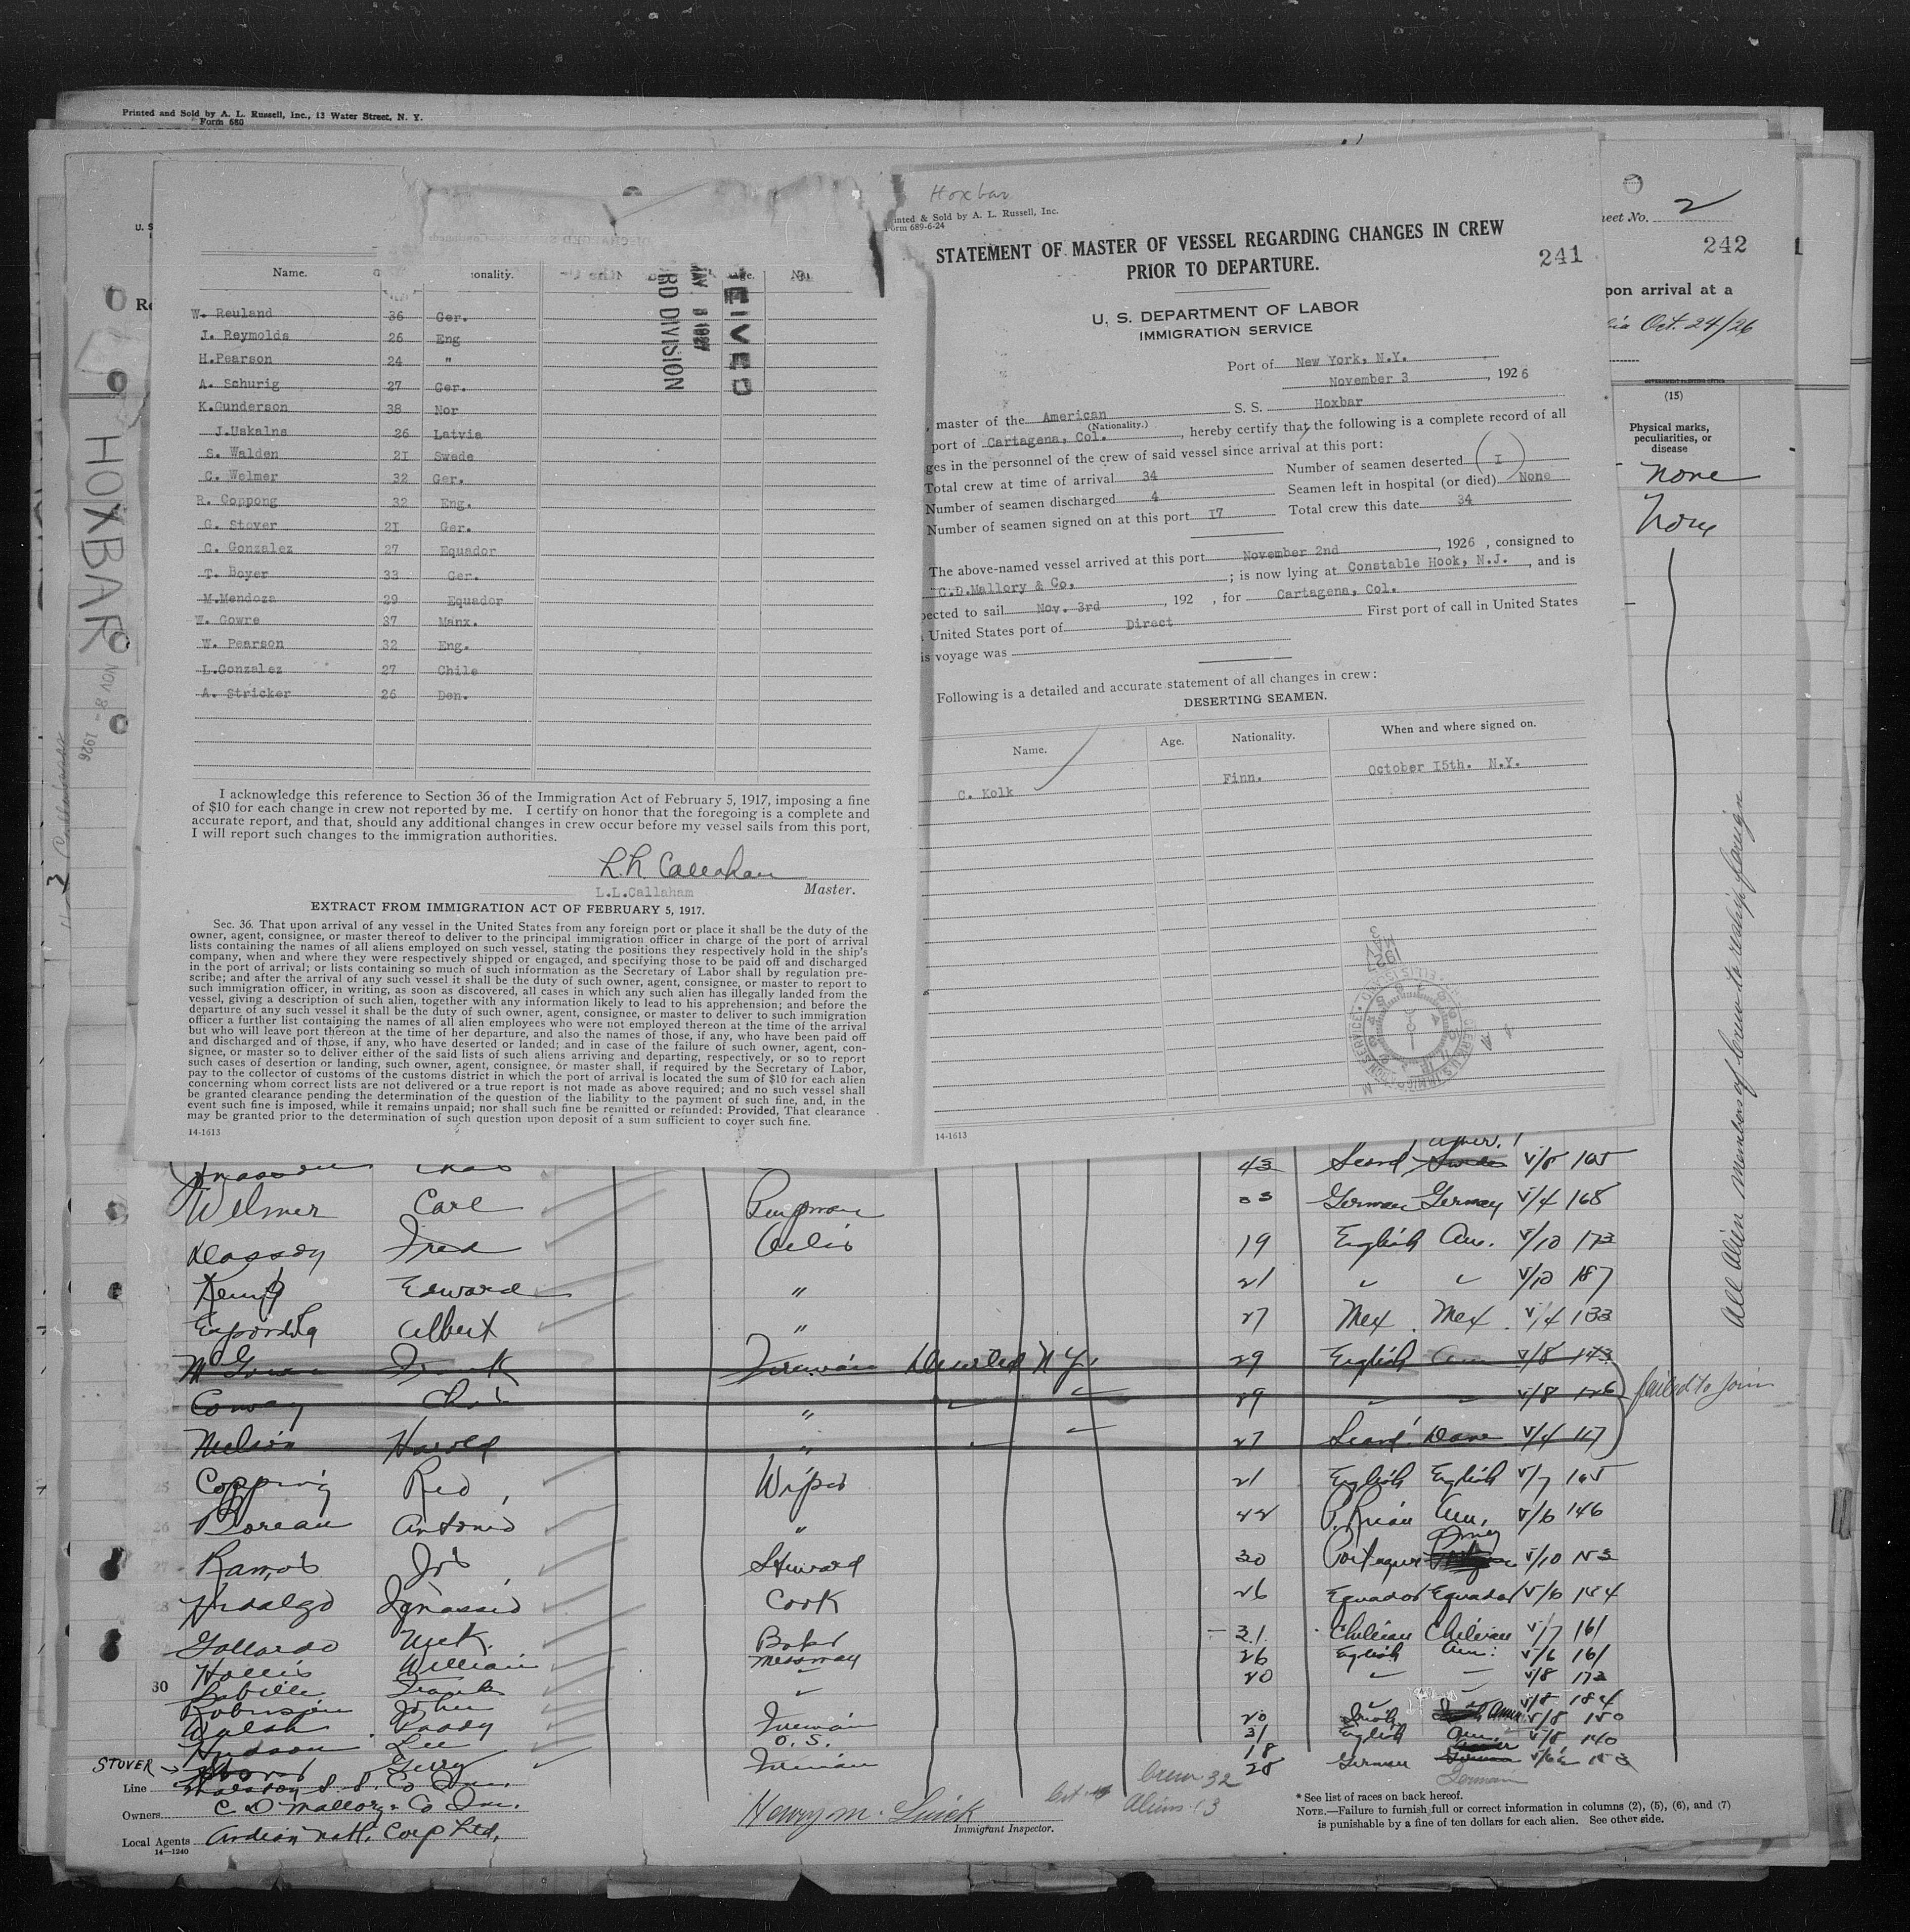 Printed and Sold by A. L. Russell, Inc., 13 Water Street, N. Y.
Form 680
Hoxbar
Printed & Sold by A. L. Russell, Inc.
Form 689-6-24
STATEMENT OF MASTER OF VESSEL REGARDING CHANGES IN CREW
PRIOR TO DEPARTURE.
241
U. S. DEPARTMENT OF LABOR
IMMIGRATION SERVICE
Port of New York, N.Y.
November 3, 1926
, master of the American S. S. Hoxbar
(Nationality.)
port of Cartagena, Col., hereby certify that the following is a complete record of all
ges in the personnel of the crew of said vessel since arrival at this port:
Total crew at time of arrival 34 Number of seamen deserted (I)
Number of seamen discharged 4 Seamen left in hospital (or died) None
Number of seamen signed on at this port 17 Total crew this date 34
The above-named vessel arrived at this port November 2nd, 1926, consigned to
C.D.Mallory & Co, ; is now lying at Constable Hook, N.J., and is
pected to sail Nov. 3rd, 192 , for Cartagena, Col.
United States port of Direct First port of call in United States
is voyage was
Following is a detailed and accurate statement of all changes in crew:
DESERTING SEAMEN.
Name. Age. Nationality. When and where signed on.
C. Kolk Finn. October 15th. N.Y.
14-1613
Name. ionality.
W. Reuland 36 Ger.
J. Reymolds 26 Eng
H.Pearson 24 "
A. Schurig 27 Ger.
K.Gunderson 38 Nor
J.Uskalns 26 Latvia
S. Walden 21 Swede
C. Welmer 32 Ger.
R. Coppong 32 Eng.
G. Stover 21 Ger.
C. Gonzalez 27 Equador
T. Boyer 33 Ger.
M.Mendoza 29 Equador
W. Gowre 37 Manx.
W. Pearson 32 Eng.
L.Gonzalez 27 Chile
A. Stricker 26 Den.
EIVED
MAY 3 1927
RD DIVISION
I acknowledge this reference to Section 36 of the Immigration Act of February 5, 1917, imposing a fine
of $10 for each change in crew not reported by me. I certify on honor that the foregoing is a complete and
accurate report, and that, should any additional changes in crew occur before my vessel sails from this port,
I will report such changes to the immigration authorities.
L.L. Callaham
L.L.Callaham Master.
EXTRACT FROM IMMIGRATION ACT OF FEBRUARY 5, 1917.
Sec. 36. That upon arrival of any vessel in the United States from any foreign port or place it shall be the duty of the
owner, agent, consignee, or master thereof to deliver to the principal immigration officer in charge of the port of arrival
lists containing the names of all aliens employed on such vessel, stating the positions they respectively hold in the ship's
company, when and where they were respectively shipped or engaged, and specifying those to be paid off and discharged
in the port of arrival; or lists containing so much of such information as the Secretary of Labor shall by regulation pre-
scribe; and after the arrival of any such vessel it shall be the duty of such owner, agent, consignee, or master to report to
such immigration officer, in writing, as soon as discovered, all cases in which any such alien has illegally landed from the
vessel, giving a description of such alien, together with any information likely to lead to his apprehension; and before the
departure of any such vessel it shall be the duty of such owner, agent, consignee, or master to deliver to such immigration
officer a further list containing the names of all alien employees who were not employed thereon at the time of the arrival
but who will leave port thereon at the time of her departure, and also the names of those, if any, who have been paid off
and discharged and of those, if any, who have deserted or landed; and in case of the failure of such owner, agent, con-
signee, or master so to deliver either of the said lists of such aliens arriving and departing, respectively, or so to report
such cases of desertion or landing, such owner, agent, consignee, or master shall, if required by the Secretary of Labor,
pay to the collector of customs of the customs district in which the port of arrival is located the sum of $10 for each alien
concerning whom correct lists are not delivered or a true report is not made as above required; and no such vessel shall
be granted clearance pending the determination of the question of the liability to the payment of such fine, and, in the
event such fine is imposed, while it remains unpaid; nor shall such fine be remitted or refunded: Provided, That clearance
may be granted prior to the determination of such question upon deposit of a sum sufficient to cover such fine.
14-1613
HOXBAR
NOV 8 - 1926
eet No. 2
242
pon arrival at a
Oct. 24/26
(15)
Physical marks,
peculiarities, or
disease
none
None
All Alien Members of Crew to reship foreign
43 Scand V/8 165
Welmer Carl Pumpman German Germany V/4 168
Fred Oiler 19 English Am. V/10 173
Kemp Edward " 21 " " V/10 187
Albert " 27 Mex. Mex. V/4 133
Frank Fireman Deserted N.Y. 29 English Am V/8 143
Conway " 29 V/8 126
Nelson Harold " 27 Scand. Dane V/4 117
failed to join
25 Copping Red Wiper 21 English English V/7 165
26 Antonio " 44 Am. V/6 146
27 Ramos Jos Steward 30 V/10 153
28 Hidalgo Ignassio Cook 26 Equador Equador V/6 144
Gallardo Nick. Baker 31 Chilean Chilean V/7 161
Hollis William Messman 26 English Am. V/6 161
30 Frank 20 V/8 173
Robinson John V/8 184
Walsh Paddy Fireman 20 V/8 150
Hudson Lee O.S. 31 English Am. V/8 140
STOVER → Gerry Fireman 18 28 German
Line
Owners C D Mallory & Co Inc.
Local Agents Andian Natl. Corp Ltd.
14-1240
Crew 32
Aliens 13
Henry M.
Immigrant Inspector.
* See list of races on back hereof.
NOTE.—Failure to furnish full or correct information in columns (2), (5), (6), and (7)
is punishable by a fine of ten dollars for each alien. See other side.